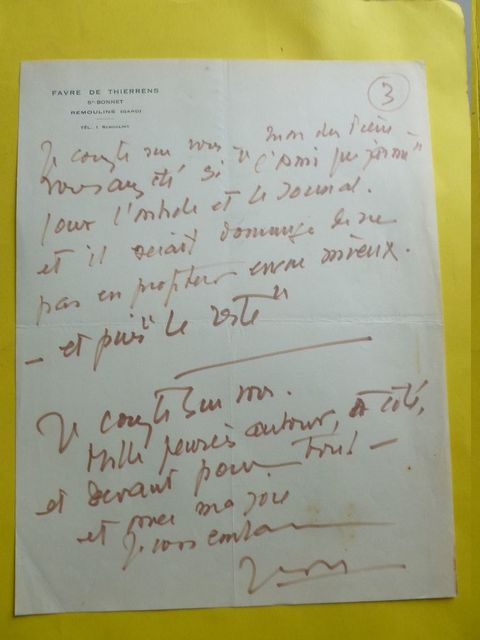 FAVRE DE THIERRENS
St-BONNET
REMOULINS (GARD)
TÉL. 1 SERNHAC
3
Je compte sur vous
vous avez été si
pour l'article et le Journal.
et il serait dommage de ne
pas en profiter encore mieux.
— et puis "le reste"
Je compte sur vous.
Mille pensées autour, à côté,
et devant pour tout —
et avec ma joie
Je vous